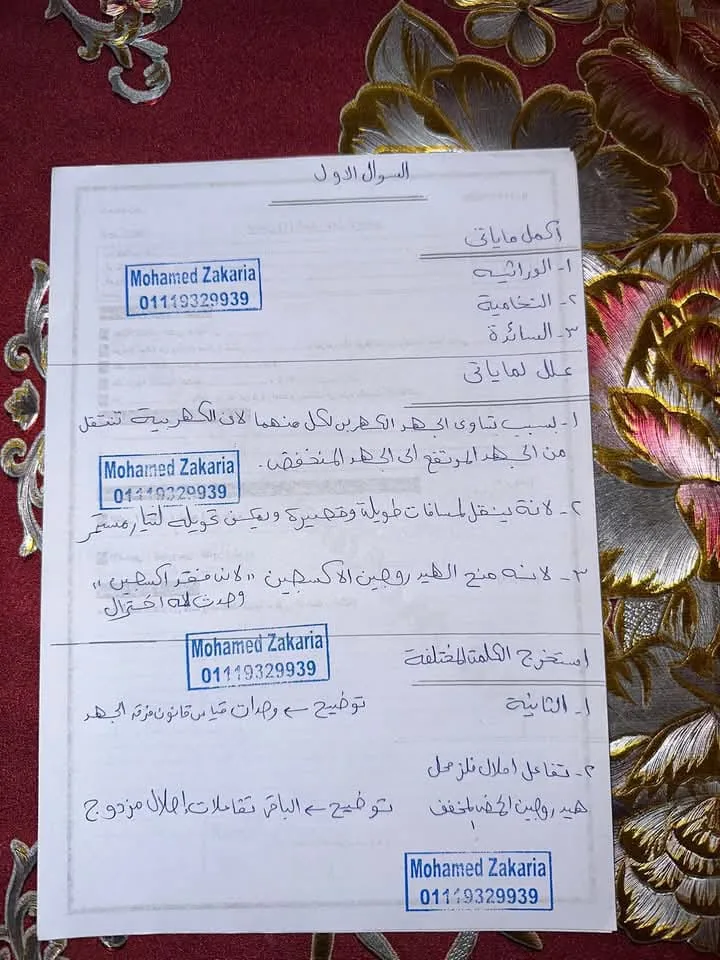 السوال الاول
أكمل ماياتى
١- الوراثيه
Mohamed Zakaria
01119329939
٢- النخامية
٣- السائدة
علل لماياتى
١- لسبب تساوى الجهد الكهربى لكل منهما لان الكهربية تنتقل
من الجهد المرتفع الى الجهد المنخفض.
Mohamed Zakaria
01119329939
٢- لانة ينقل لمسافات طويلة وقصيرة ويمكن تحويله لتيار مستمر
٣- لانه منح الهيدروجين الاكسجين "لانه فقد اكسجين"
وحدث له اختزال
Mohamed Zakaria
01119329939
استخرج الكلمة المختلفة
١- الثانية توضيح ← وحدات قياس قانون فرق الجهد
٢- تفاعل احلال فلز محل
هيدروجين الحمض المخفف توضيح ← الباقى تفاعلات إحلال مزدوج
Mohamed Zakaria
01119329939